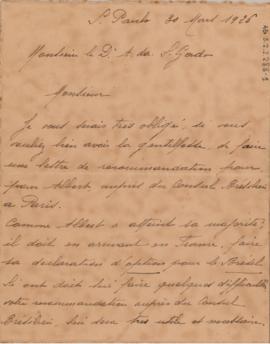 St Paulo 30 Mart 1926
Monsieur le Dr A. da
Monsieur
Je vous serais très obligé, si vous
vouliez bien avoir la gentillesse de faire
une lettre de recommandation pour
Albert auprès du Consul Brésilien
a Paris.
Comme Albert a atteint sa majorité,
il doit en arrivant en France, faire
sa declaration d'option pour le Brésil.
Si on doit lui faire quelques difficultés
votre recommandation auprès du Consul
Brésilien lui sera très utile et